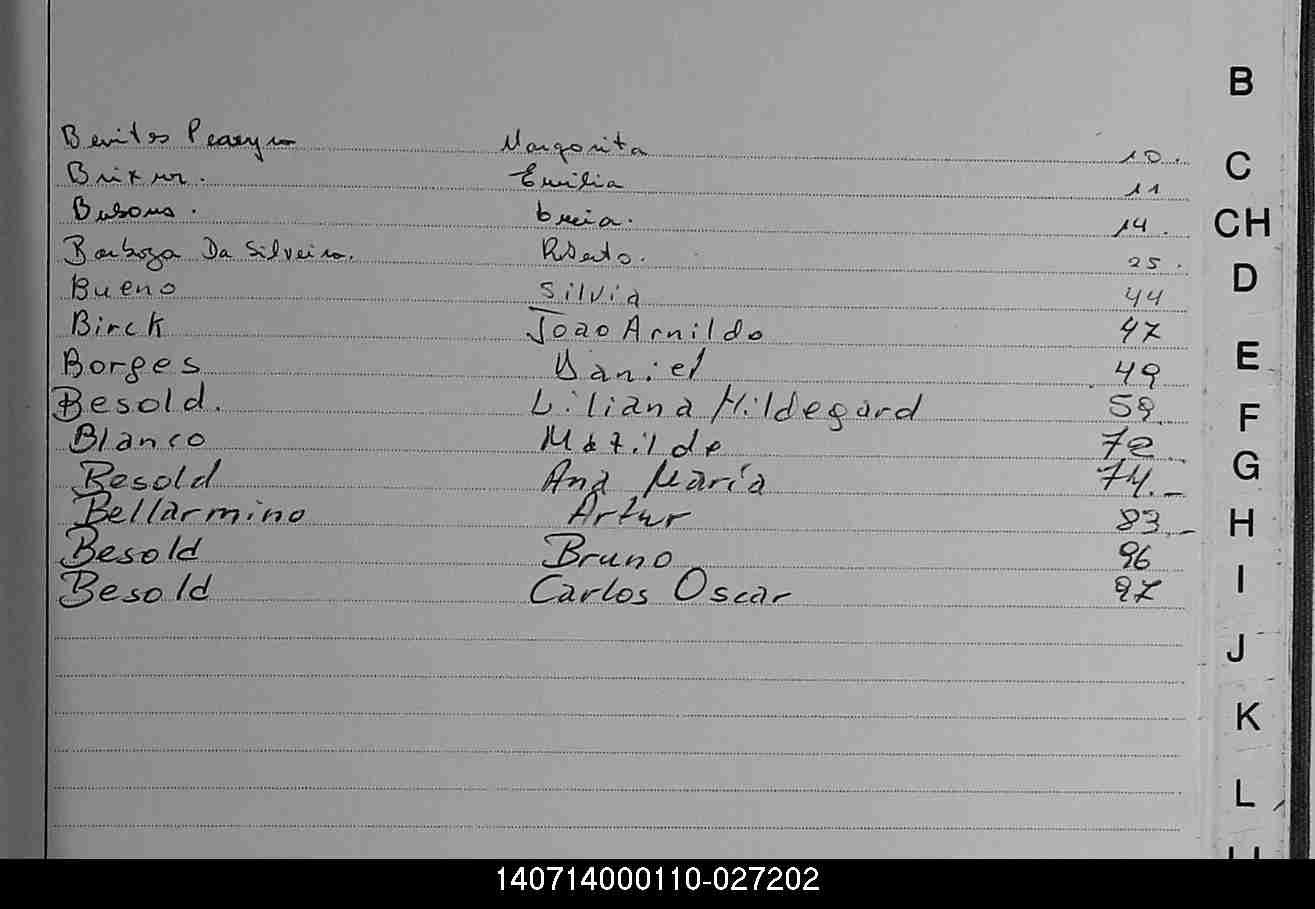 B
Benites Pereyra Margarita 10.
C
Emilia 11
14.
CH
Barboza Da Silveira. Roberto. 25.
D
Bueno Silvia 44
Birck Joao Arnildo 47
E
Borges Daniel 49
Besold. Liliana Hildegard 59
F
Blanco Matilde 72
G
Besold Ana María 74.-
Bellarmino Artur 83.-
H
Besold Bruno 96
I
Besold Carlos Oscar 97
J
K
L
140714000110-027202